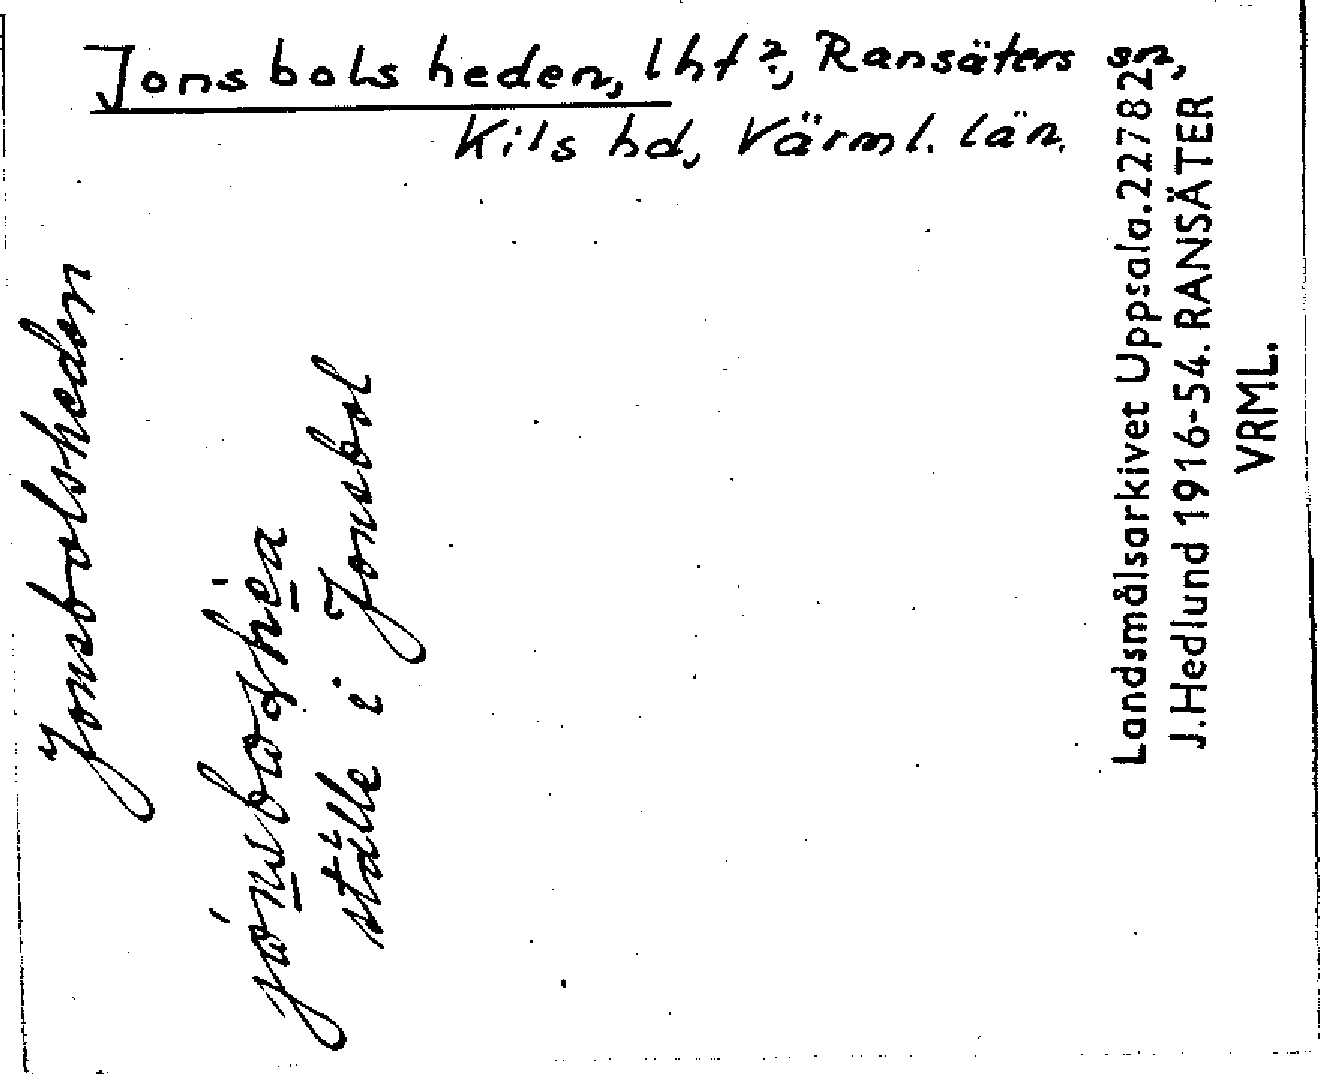 Jonsbolsheden, lht?, Ransäters sn,
Kils hd, Värml. län.
Jonsbolsheden
ställe i Jonsbol
Landsmålsarkivet Uppsala.22782
J.Hedlund 1916-54. RANSÄTER
VRML.